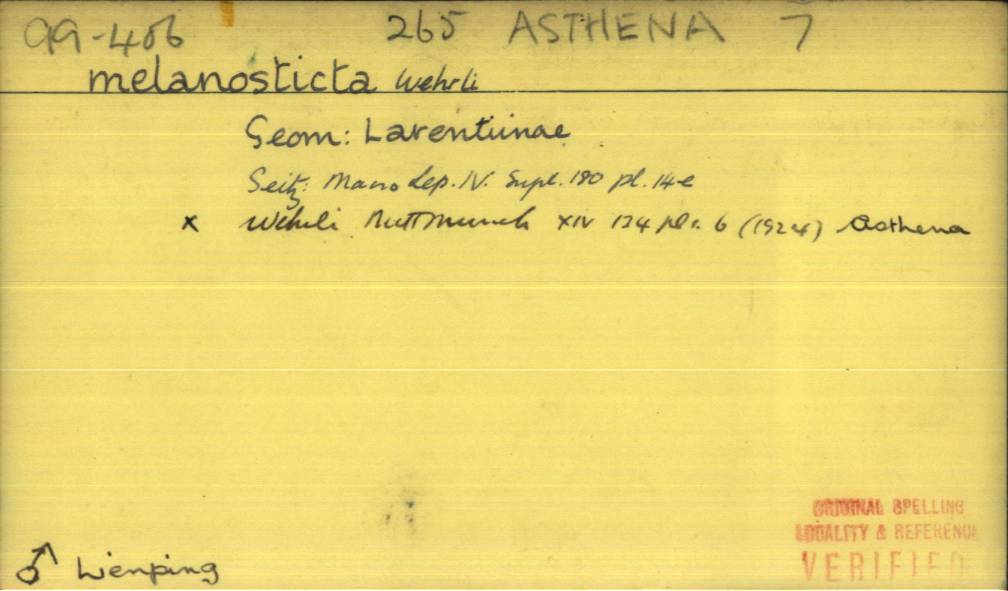 99-406 265 ASTHENA 7
melanosticta Wehrli
Geom: Larentiinae
Seitz: Macrolep. IV. Supl. 180 pl. 14e
x Wehrli Mitt Münch XIV 134 pl 1. 6 (1924) Asthena
ORIGINAL SPELLING
LOCALITY & REFERENCE
VERIFIED
♂ Lienping